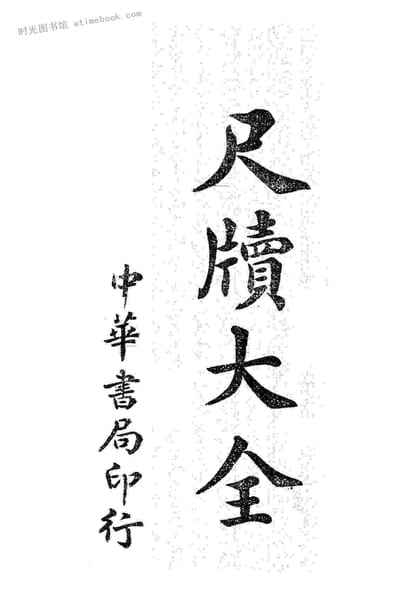 时光图书馆 atimebook.com
尺牘大全
中華書局印行